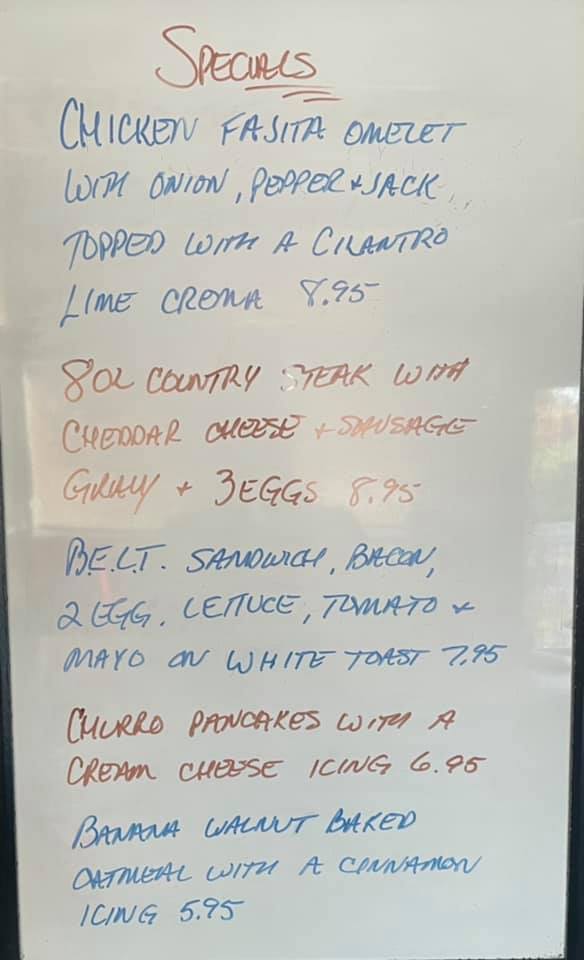 SPECIALS
CHICKEN FAJITA OMELET
WITH ONION, PEPPER + JACK
TOPPED WITH A CILANTRO
LIME CREMA 8.95
8OZ COUNTRY STEAK WITH
CHEDDAR CHEESE + SAUSAGE
GRAVY + 3 EGGS 8.95
B.E.L.T. SANDWICH, BACON,
2 EGG, LETTUCE, TOMATO +
MAYO ON WHITE TOAST 7.95
CHURRO PANCAKES WITH A
CREAM CHEESE ICING 6.95
BANANA WALNUT BAKED
OATMEAL WITH A CINNAMON
ICING 5.95